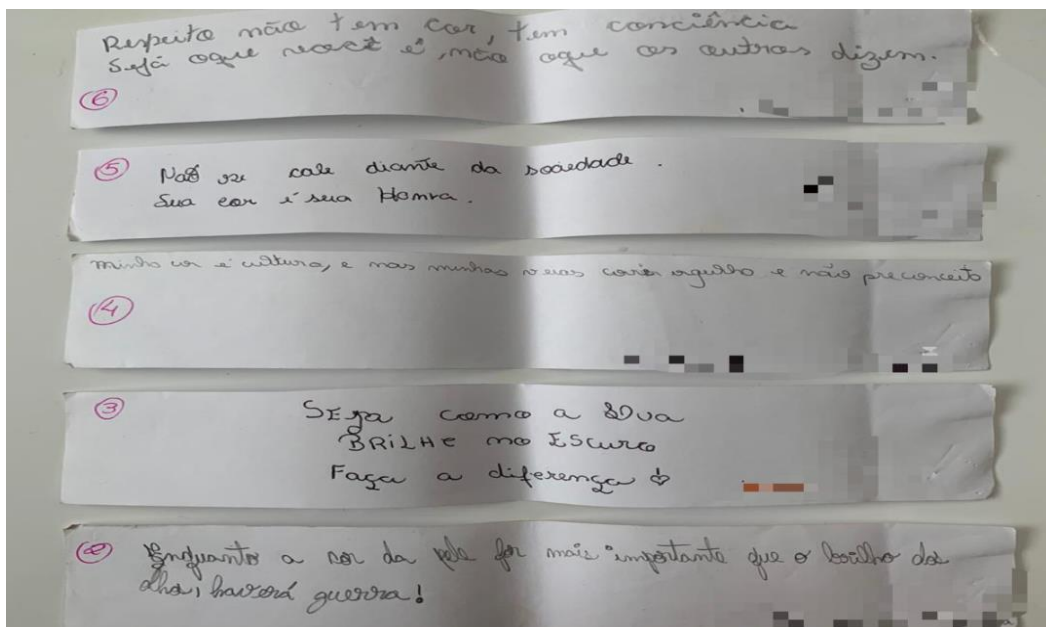 Respeito não tem cor, tem conciência
Sejá oque você é, não oque os outros dizem.
6
5 Não se cale diante da sociedade.
Sua cor é sua Honra.
minha cor é cultura, e nas minhas veias corre orgulho e não preconceito
4
3 SEja como a lua
BRiLHe no EScuro
Faça a diferença
2 Enquanto a cor da pele for mais importante que o brilho dos
olho, haverá guerra!